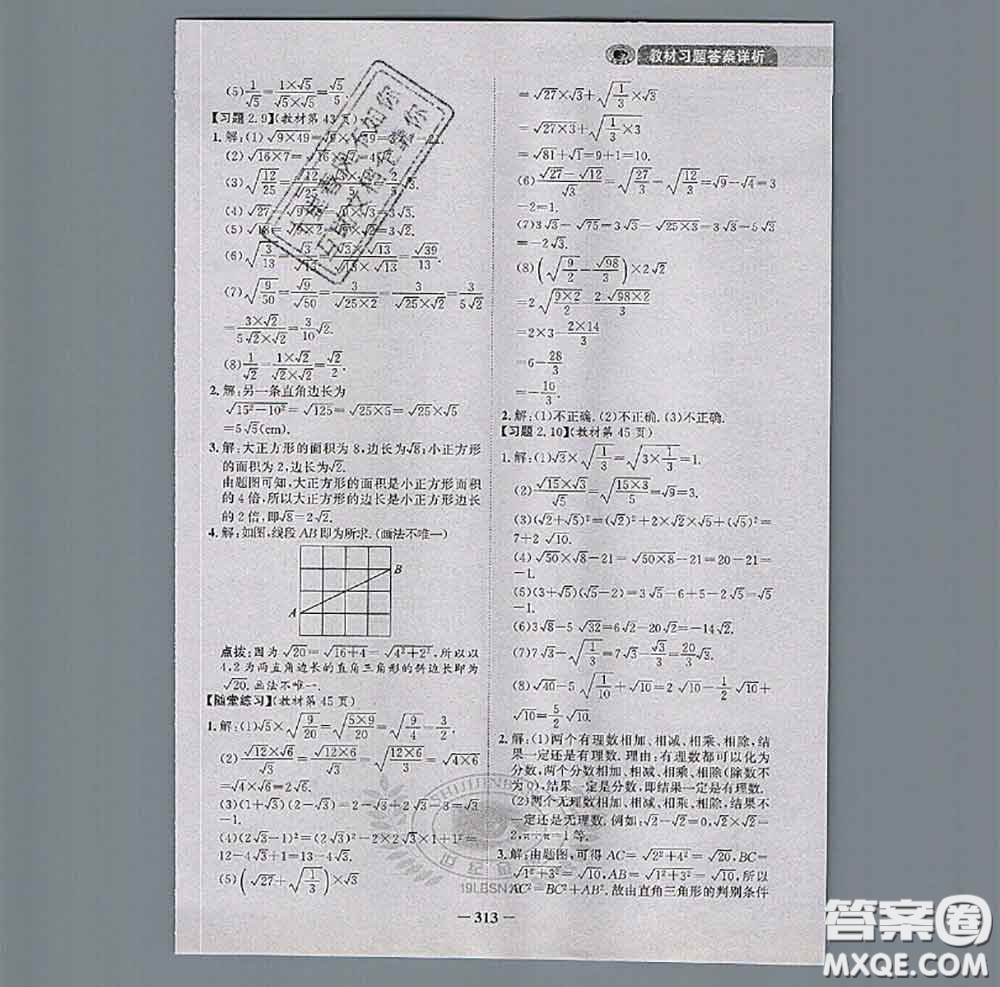 教材习题答案详析
(5)1/√5=(1×√5)/(√5×√5)=√5/5.
【习题2.9】(教材第43页)
1.解:(1)√(9×49)=√9×
(2)√(16×7)=√16×√7=4
(3)√(12/25)=√12/√25=
(4)√27=√
(5)√18=
(6)√(3/13)=√3/√13=(√3×√13)/(√13×√13)=√39/13.
(7)√(9/50)=√9/√50=3/√(25×2)=3/(√25×√2)=3/(5√2)
=(3×√2)/(5√2×√2)=3/10√2.
(8)1/√2=(1×√2)/(√2×√2)=√2/2.
2.解:另一条直角边长为
√(15²-10²)=√125=√(25×5)=√25×√5
=5√5(cm).
3.解:大正方形的面积为8,边长为√8;小正方形
的面积为2,边长为√2.
由题图可知,大正方形的面积是小正方形面积
的4倍,所以大正方形的边长是小正方形边长
的2倍,即√8=2√2.
4.解:如图,线段AB即为所求.(画法不唯一)
B
A
点拨:因为√20=√(16+4)=√(4²+2²),所以以
4,2为两直角边长的直角三角形的斜边长即为
√20.画法不唯一.
【随堂练习】(教材第45页)
1.解:(1)√5×√(9/20)=√((5×9)/20)=√(9/4)=3/2.
(2)(√12×√6)/√3=√(12×6)/√3=√((12×6)/3)=√(4×6)
=√4×√6=2√6.
(3)(1+√3)(2-√3)=2-√3+2√3-3=√3-
1.
(4)(2√3-1)²=(2√3)²-2×2√3×1+1²=
12-4√3+1=13-4√3.
(5)(√27+√(1/3))×√3
=√27×√3+√(1/3)×√3
=√(27×3)+√(1/3×3)
=√81+√1=9+1=10.
(6)(√27-√12)/√3=√(27/3)-√(12/3)=√9-√4=3
-2=1.
(7)3√3-√75=3√3-√(25×3)=3√3-5√3
=-2√3.
(8)(√(9/2)-√98/3)×2√2
=2√((9×2)/2)-(2√(98×2))/3
=2×3-(2×14)/3
=6-28/3
=-10/3.
2.解:(1)不正确.(2)不正确.(3)不正确.
【习题2.10】(教材第45页)
1.解:(1)√3×√(1/3)=√(3×1/3)=1.
(2)(√15×√3)/√5=√((15×3)/5)=√9=3.
(3)(√2+√5)²=(√2)²+2×√2×√5+(√5)²=
7+2√10.
(4)√50×√8-21=√(50×8)-21=20-21=
-1.
(5)(3+√5)(√5-2)=3√5-6+5-2√5=√5
-1.
(6)3√8-5√32=6√2-20√2=-14√2.
(7)7√3-√(1/3)=7√3-√3/3=20/3√3.
(8)√40-5√(1/10)+√10=2√10-1/2√10+
√10=5/2√10.
2.解:(1)两个有理数相加、相减、相乘、相除,结
果一定还是有理数.理由:有理数都可以化为
分数,两个分数相加、相减、相乘、相除(除数不
为0),结果一定是分数,即结果一定是有理数.
(2)两个无理数相加、相减、相乘、相除,结果不
一定还是无理数.例如:√2-√2=0,√2×√2=
2,π÷π=1等.
3.解:由题图,可得AC=√(2²+4²)=√20,BC=
√(1²+3²)=√10,AB=√(1²+3²)=√10,所以
AC²=BC²+AB².故由直角三角形的判别条件
— 313 —
答案圈
MXQE.COM